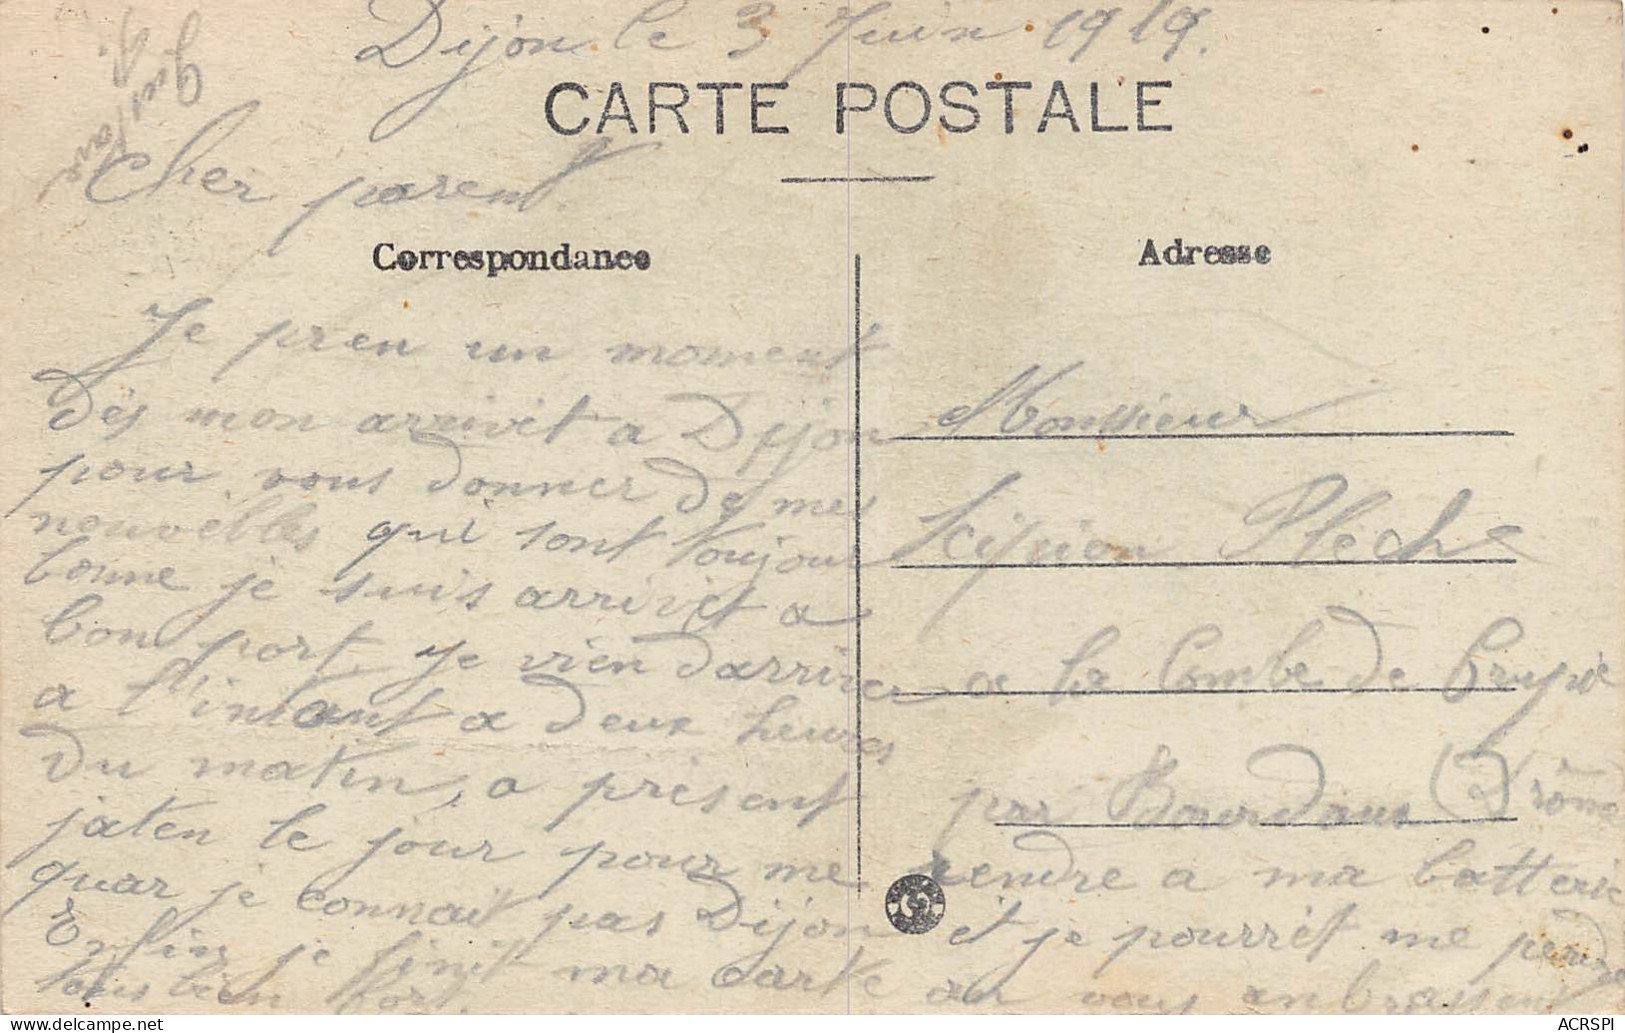 Dijon le 3 Juin 1919.
CARTE POSTALE
Cher parent.
Correspondance
Adresse
Je pren un moment
dès mon arrivét a Dijon
pour vous donner de mes
nouvèlles qui sont toujour
bonne je suis arrivét a
bon port, je vien darriver
a l'intant a deux heures
du matin, a présent
jaten le jour pour me rendre a ma batterie
quar je connait pas Dijon et je pourrét me perdre
Enfin je finit ma carte en vous enbrassent
tous bien fort.
Monssieur
Scipion Plèche
a la Combe de
par Bourdaux (Drôme
ACRSPI